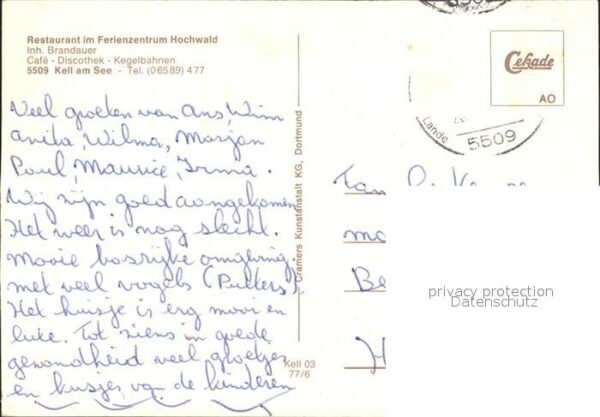 Restaurant im Ferienzentrum Hochwald
Inh. Brandauer
Café - Discothek - Kegelbahnen
5509 Kell am See - Tel. (06589) 477
Veel groeten van Ans, Wim
Anita, Wilma, Marjan
Poul, Maurice, Irma.
Wij zijn goed aangekomen
Het weer is nog slecht.
Mooie bosrijke omgeving.
met veel vogels (Putters)
Het huisje is erg mooi en
luke. Tot ziens in goede
gezondheid veel groetjes
en kusjes van de kinderen
Cramers Kunstanstalt KG, Dortmund
Kell 03
77/6
Cekade
AO
Lande
5509
Fam
privacy protection
Datenschutz